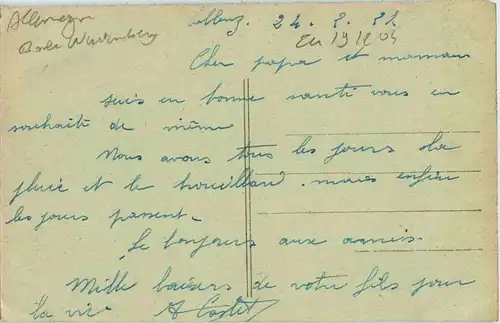 Allemagne
Bade Wurtemberg
24. 8. 32
Cher papa et maman
suis en bonne santé vous en
souhaite de même
Nous avons tous les jours de la
pluie et le brouillard. mais enfin
les jours passent-
Le bonjours aux amis.
Mille baisers de votre fils pour
la vie